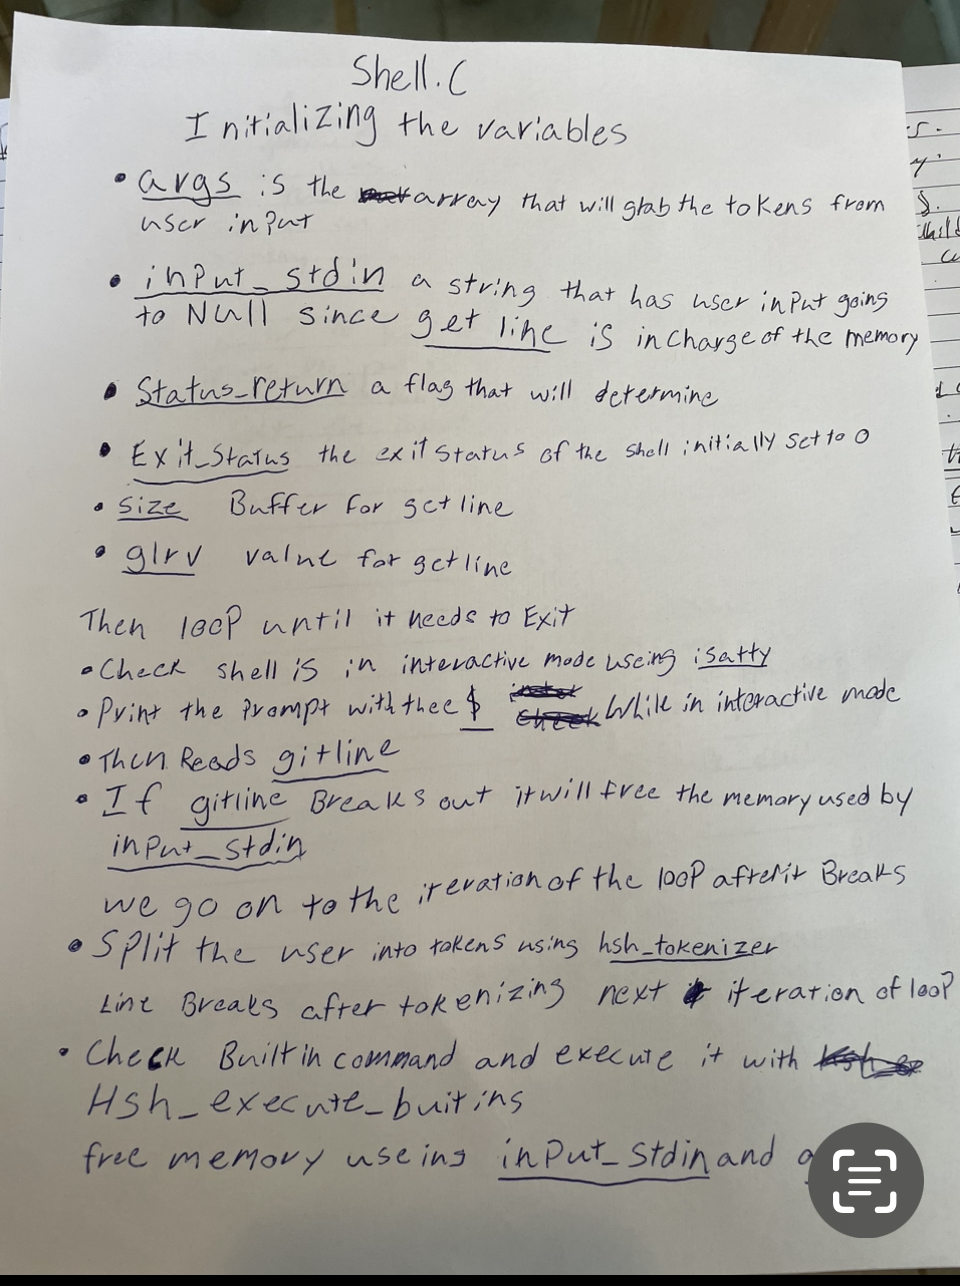 Shell.C
Initializing the variables
• args is the array that will grab the tokens from
user input
• input_stdin a string that has user input going
to Null since get line is incharge of the memory
• Status_return a flag that will determine
• Exit_Status the exit status of the shell initially set to 0
• size Buffer for getline
• glrv value for getline
Then loop until it needs to Exit
• Check shell is in interactive mode useing isatty
• Print the Prompt with thee $ While in interactive mode
• Then Reads gitline
• If gitline Breaks out it will free the memory used by
input_stdin
we go on to the iteration of the loop after it Breaks
• Split the user into tokens using hsh_tokenizer
Line Breaks after tokenizing next iteration of loop
• Check Builtin command and execute it with
Hsh_execute_buitins
free memory useing input_stdin and